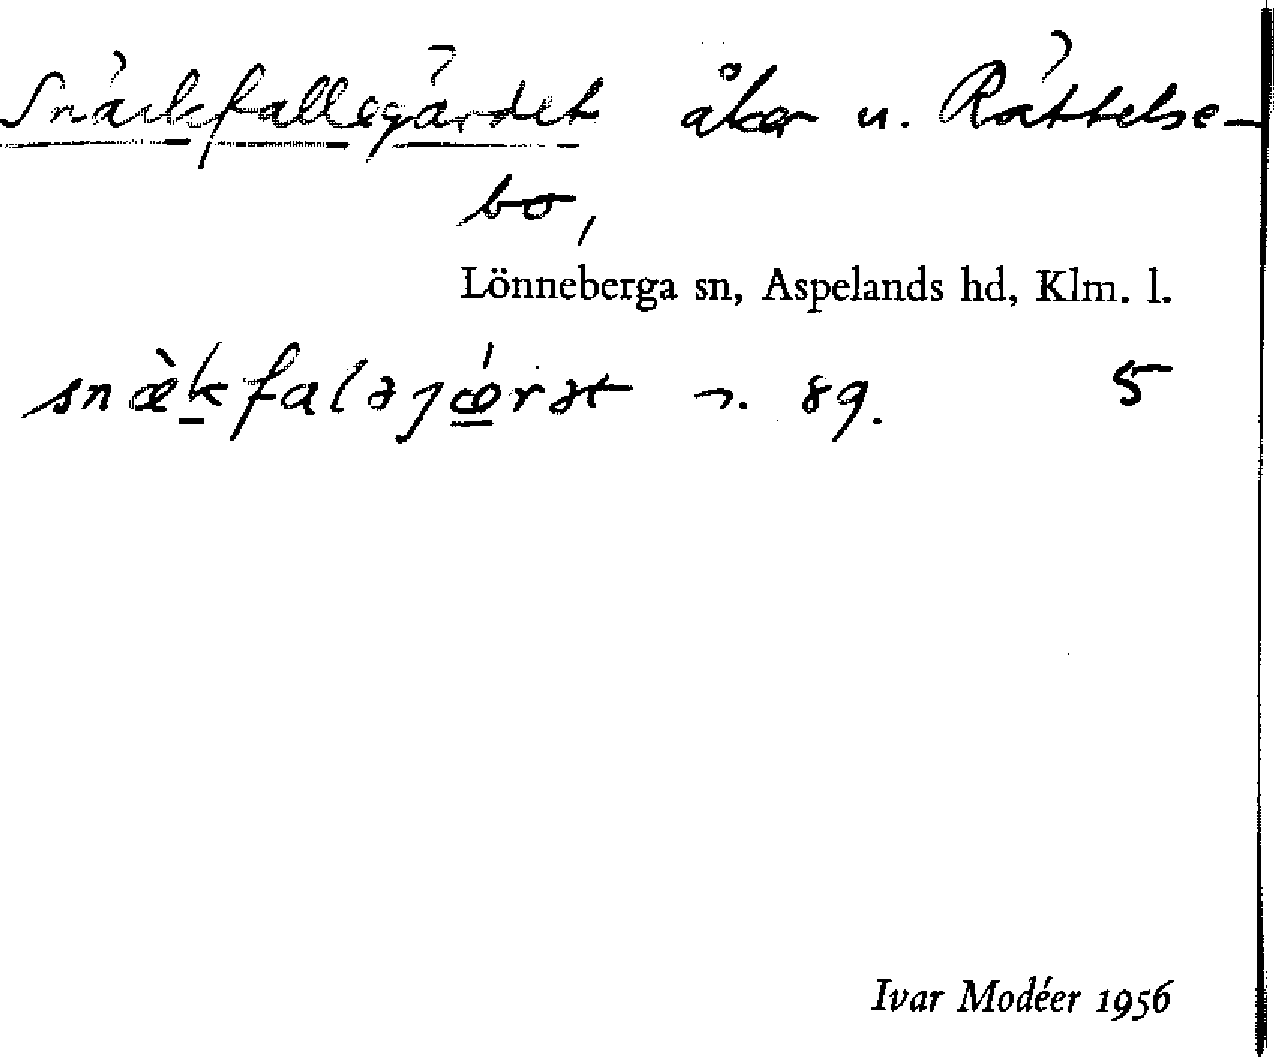 Snäckfallegärdet åker u. Rättelse-
bo,
Lönneberga sn, Aspelands hd, Klm. l.
snæ̀kfaləjǽrət n. 89. 5
Ivar Modéer 1956